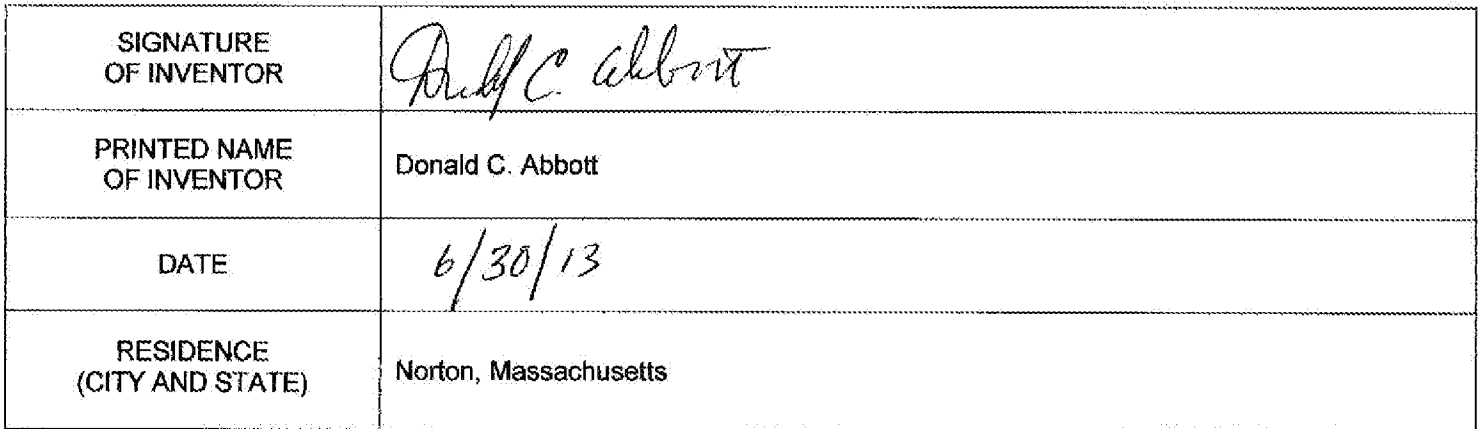 SIGNATURE
OF INVENTOR
Donald C. Abbott
PRINTED NAME
OF INVENTOR
Donald C. Abbott
DATE
6/30/13
RESIDENCE
(CITY AND STATE)
Norton, Massachusetts